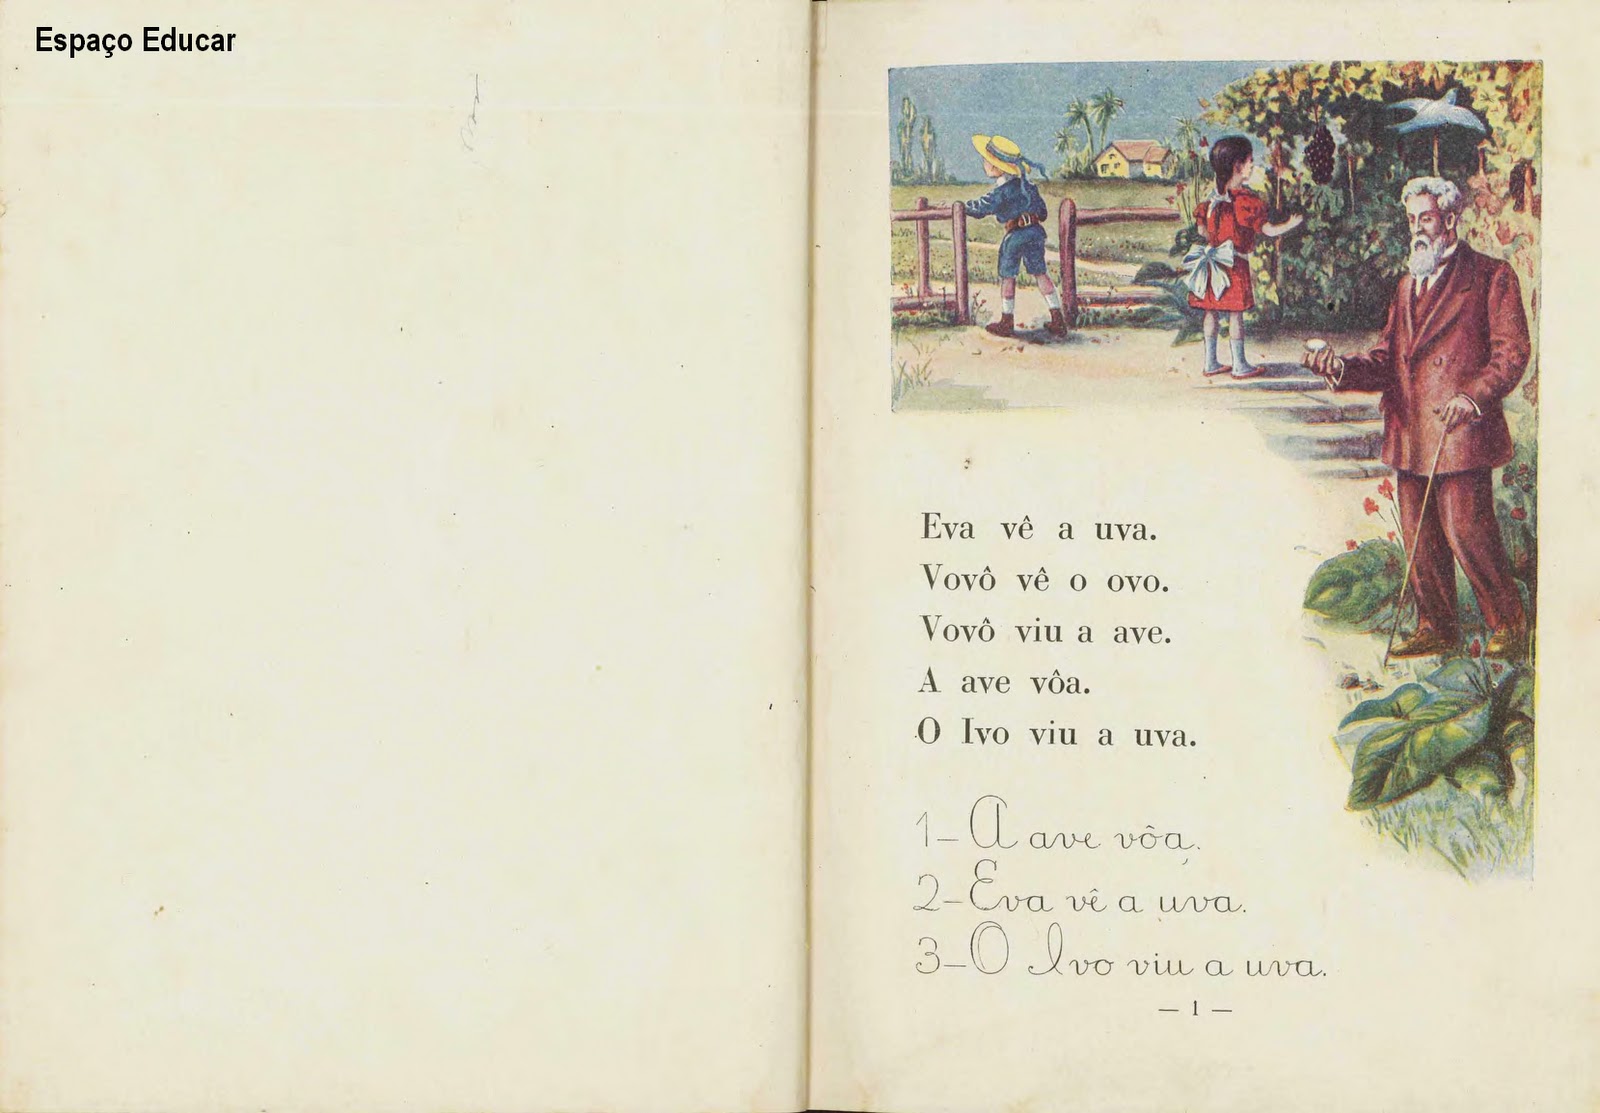 Espaço Educar
Eva vê a uva.
Vovô vê o ovo.
Vovô viu a ave.
A ave vôa.
O Ivo viu a uva.
1-A ave vôa.
2-Eva vê a uva.
3-O Ivo viu a uva.
— 1 —